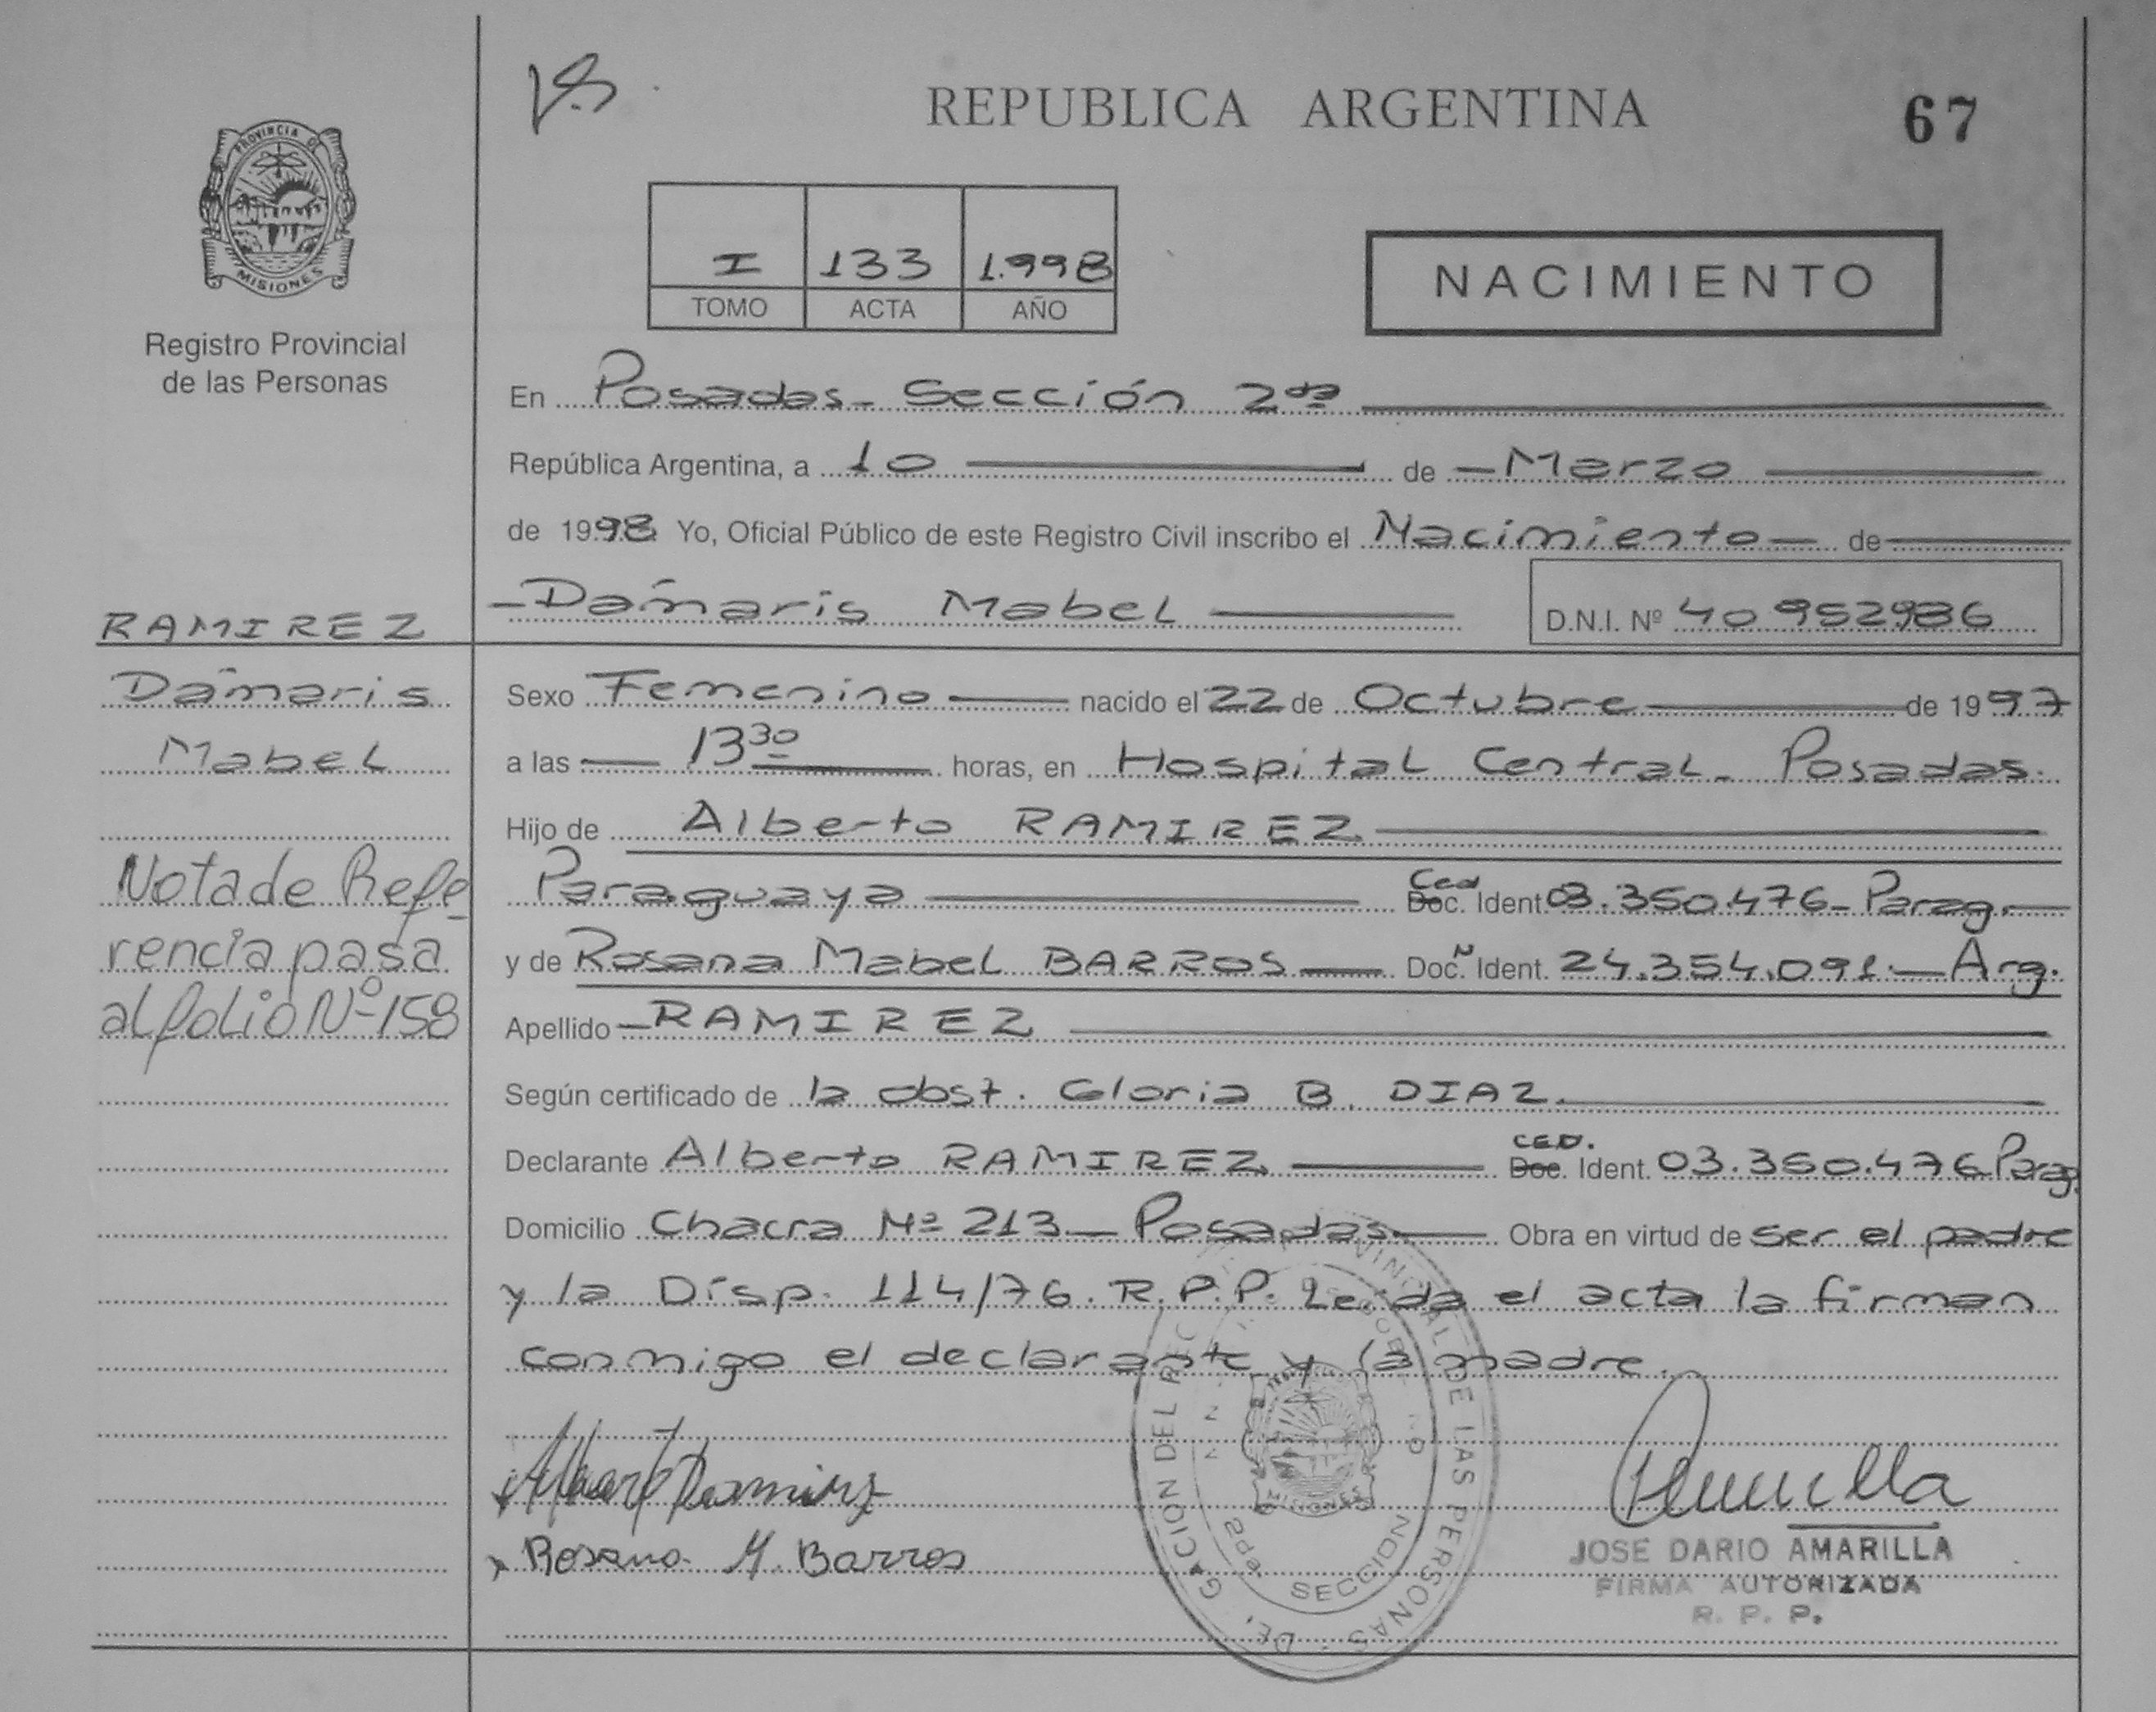 REPUBLICA ARGENTINA
67
PROVINCIA DE
MISIONES
Registro Provincial
de las Personas
I 133 1.998
TOMO ACTA AÑO
NACIMIENTO
En Posadas - Sección 2da
República Argentina, a 10 de Marzo
de 1998 Yo, Oficial Público de este Registro Civil inscribo el Nacimiento de
Dámaris Mabel
D.N.I. Nº 40 952986
RAMIREZ
Dámaris
Mabel
Nota de Refe-
rencia pasa
al folio Nº 158
Sexo Femenino nacido el 22 de Octubre de 1997
a las 13 30 horas, en Hospital Central - Posadas.
Hijo de Alberto RAMIREZ
Paraguaya Ced Doc. Ident. 03.350.476 - Parag.
y de Rosana Mabel BARROS Doc. N Ident. 24.354.091 - Arg.
Apellido RAMIREZ
Según certificado de la obst. Gloria B. DIAZ.
Declarante Alberto RAMIREZ CED. Doc. Ident. 03.350.476 Parag.
Domicilio Chacra Nº 213 - Posadas Obra en virtud de ser el padre
y la Disp. 114/76. R.P.P. Leída el acta la firman
conmigo el declarante y la madre.
Alberto Ramirez
Rosana M. Barros
JOSE DARIO AMARILLA
FIRMA AUTORIZADA
R. P. P.
DE LAS PERSONAS
SECCION
MISIONES